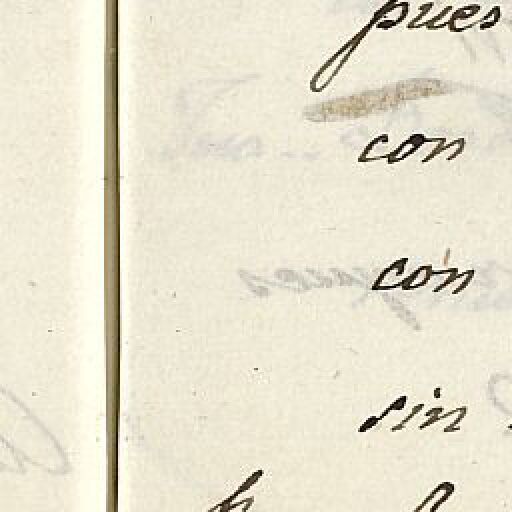 pues
con
con
sin